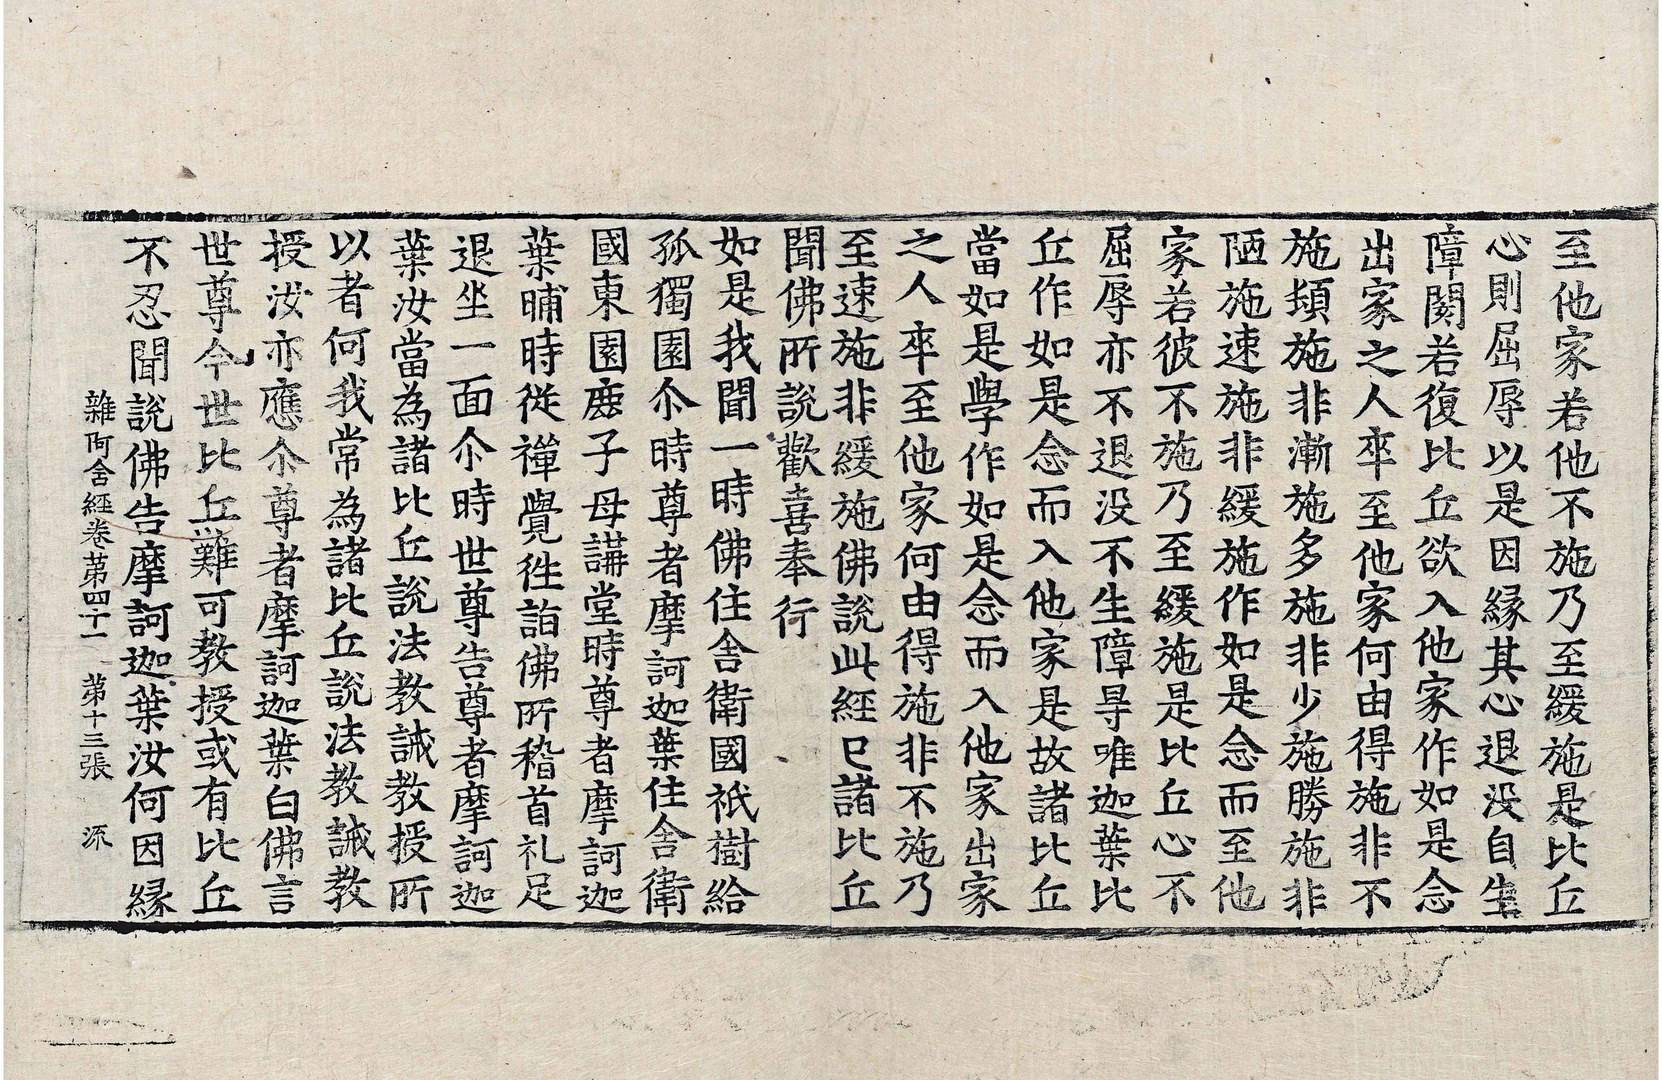 至他家若他不施乃至緩施是比丘
心則屈辱以是因緣其心退没自生
障閡若復比丘欲入他家作如是念
出家之人卒至他家何由得施非不
施頻施非漸施多施非少施勝施非
陋施速施非緩施作如是念而至他
家若彼不施乃至緩施是比丘心不
屈辱亦不退没不生障㝵唯迦葉比
丘作如是念而入他家是故諸比丘
當如是學作如是念而入他家出家
之人卒至他家何由得施非不施乃
至速施非緩施佛說此経已諸比丘
聞佛所說歡喜奉行
如是我聞一時佛住舍衛國祇樹給
孤獨園尒時尊者摩訶迦葉住舍衛
國東園鹿子母講堂時尊者摩訶迦
葉晡時從禪覺徃詣佛所稽首礼足
退坐一面尒時世尊告尊者摩訶迦
葉汝當為諸比丘說法教誡教授所
以者何我常為諸比丘說法教誡教
授汝亦應尒尊者摩訶迦葉白佛言
世尊今世比丘難可教授或有比丘
不忍聞說佛告摩訶迦葉汝何因緣
雜阿含經卷苐四十一 苐十三張 流